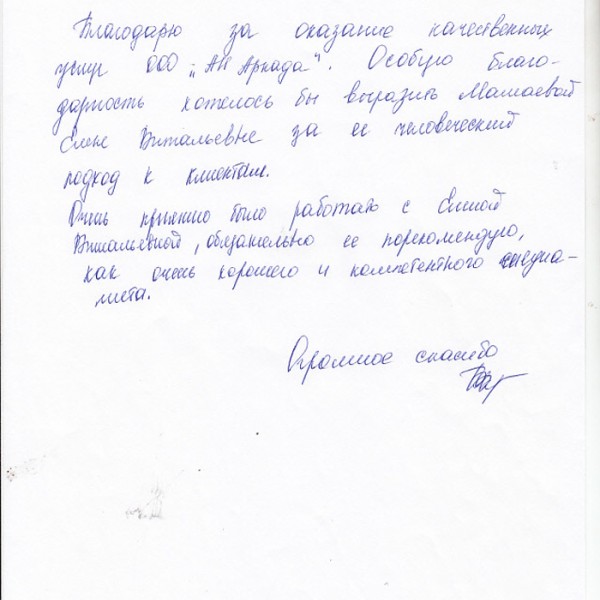 Благодарю за оказание качественных
услуг ООО „АН Аркада". Особую благо-
дарность хотелось бы выразить Мамаевой
Елене Витальевне за ее человеческий
подход к клиентам.
Очень приятно было работать с Еленой
Витальевной, обязательно ее порекомендую,
как очень хорошего и компетентного специа-
листа.
Огромное спасибо